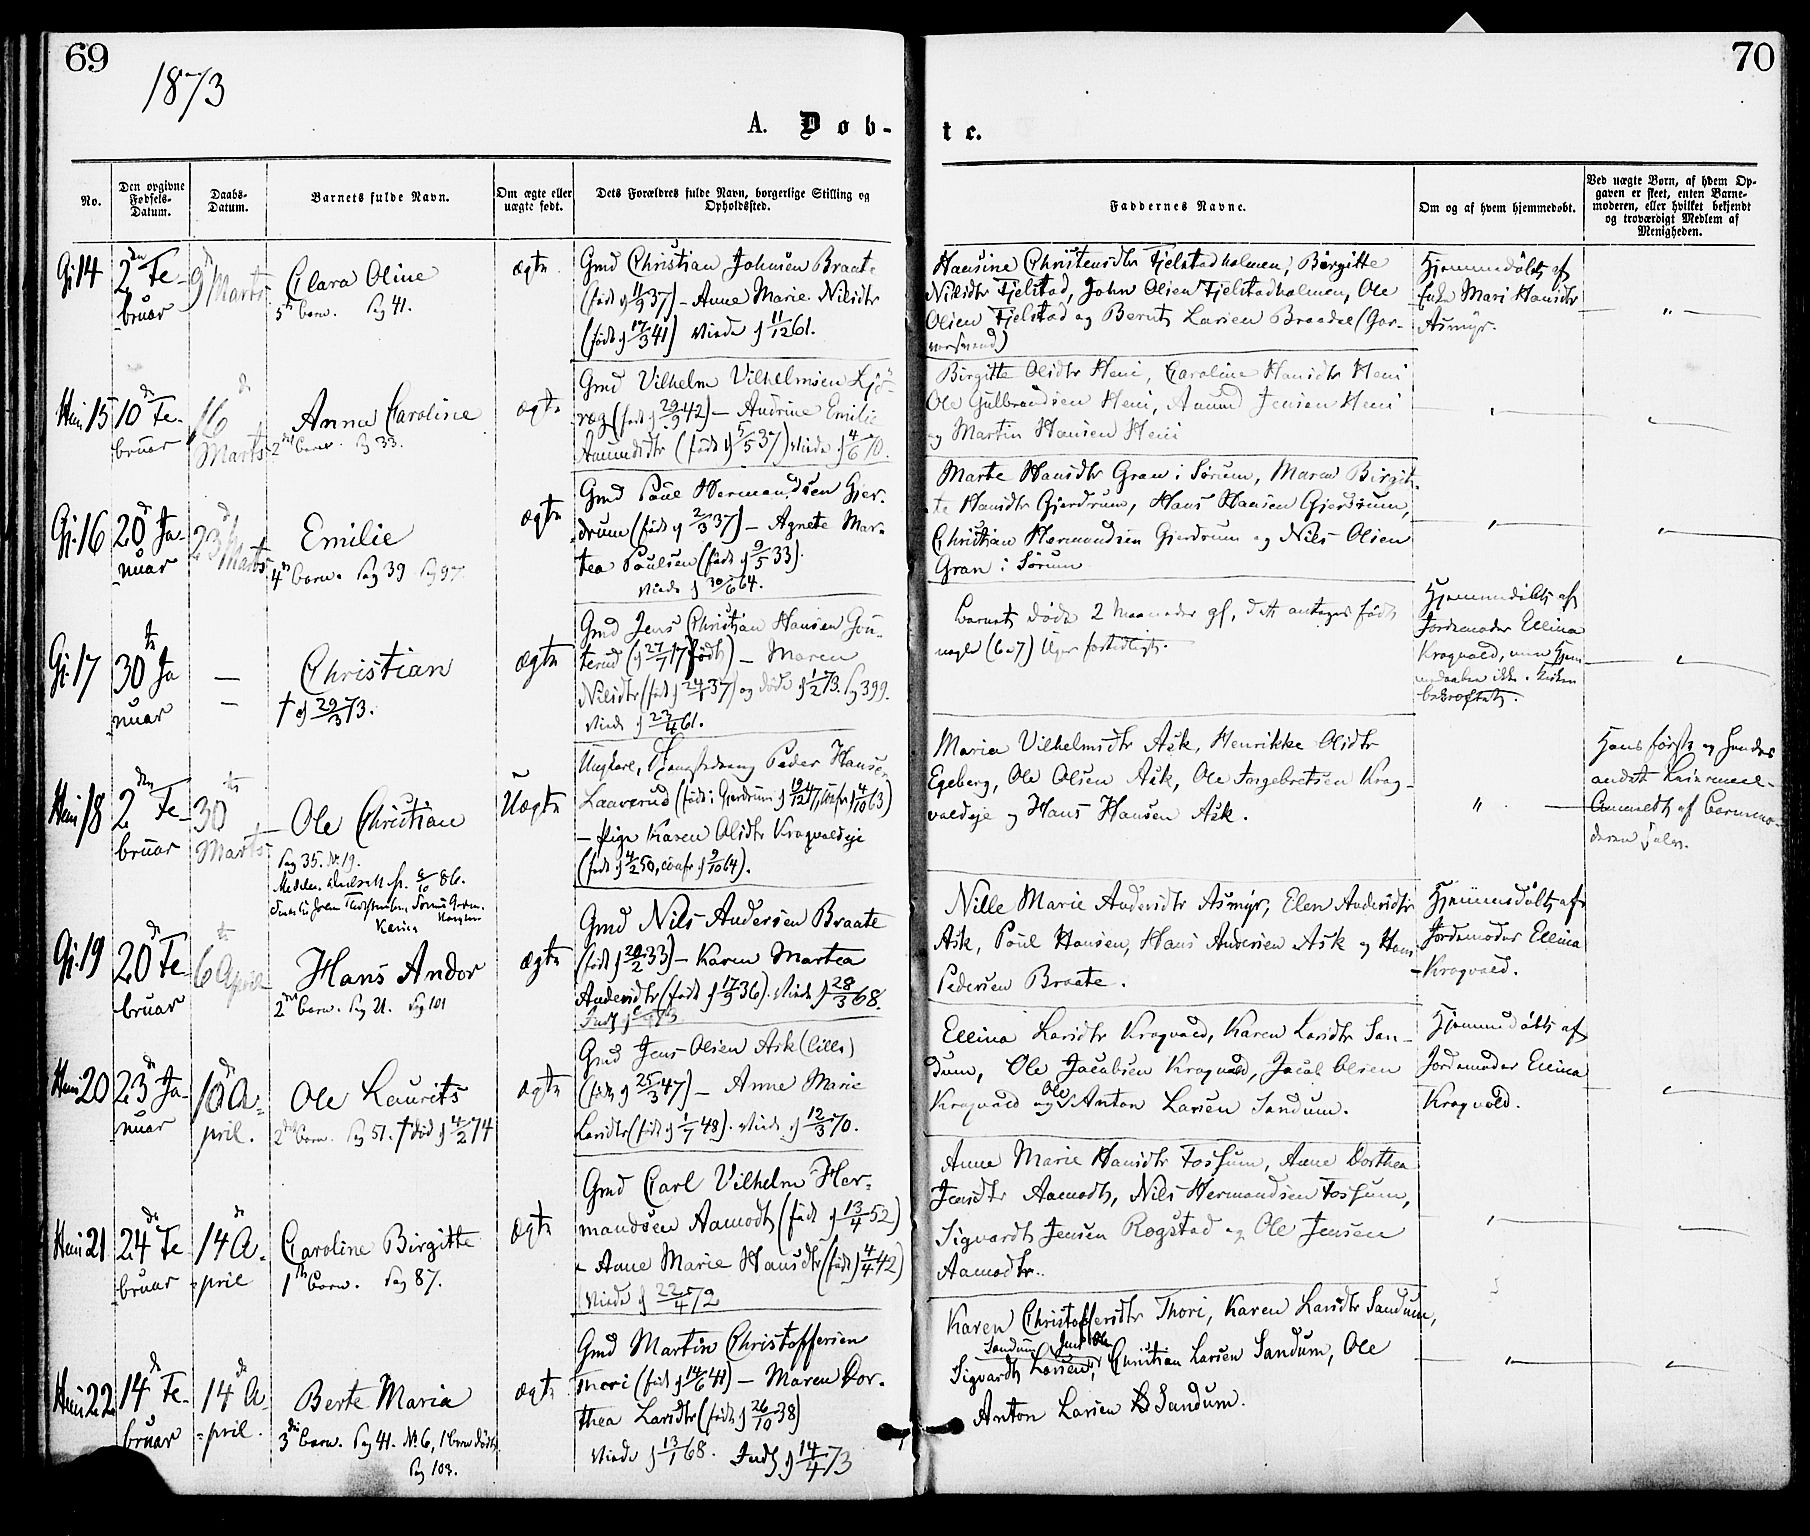 69
70
1873
A. Døb-
te.
No.
Den opgivne
Fødsels-
Datum.
Daabs-
Datum.
Barnets fulde Navn.
Om ægte eller
uægte født.
Dets Forældres fulde Navn, borgerlige Stilling og
Opholdssted.
Faddernes Navne.
Om og af hvem hjemmedøbt.
Ved uægte Børn, af hvem Op-
gaven er skeet, enten Barne-
moderen, eller hvilket bekjendt
og troværdigt Medlem af
Menigheden.
Gj. 14
2den Fe-
bruar
9d Marts
Clara Oline
5te barn. Pag 41.
ægte
Gmd Christian Johnsen Braate
(født d 11/9 37) – Anne Marie Nilsdtr
(født d 17/3 41) Viede d 11/12 61.
Hansine Christensdtr Fjelstadholmen, Birgitte
Nilsdtr Fjelstad, John Olsen Fjelstadholmen, Ole
Olsen Fjelstad og Bernt Larsen Braadal (Gar-
Hjemmedøbt af
Enke Mari Hansdtr
Asmyr.
Hæni 15
10de Fe-
bruar
16de
Marts
Anna Caroline
2det barn. Pg 33.
ægte
Gmd Vilhelm Vilhelmsen Kjö-
røg (født d 29/9 42) – Andrine Emilie
Amundsdtr (født d 5/5 37) Viede d 4/6 70.
Birgitte Olsdtr Heni, Caroline Hansdtr Heni
Ole Gulbrandsen Heni, Amund Jensen Heni
og Martin Hansen Heni
Gj. 16
20d Ja-
nuar
23d Marts
Emilie
4de barn. Pag 39 Pg 97.
ægte
Gmd Poul Hermandsen Gjer-
drum (født d 2/3 37) – Agnete Mar-
tea Poulsen (født d 9/5 33).
Viede d 30/6 64.
Marte Hansdtr Gran i Sørum, Maren Birgit-
te Hansdtr Gjerdrum, Hans Hansen Gjerdrum,
Christian Hermandsen Gjerdrum og Nils Olsen
Gran i Sørum
Gj. 17
30te Ja
nuar
Christian
† d 29/3 73.
ægte
Gmd Jens Christian Hansen Gou-
terud (d 27/7 17 født) – Maren
Nilsdtr (født d 24/1 37) og døde d 1/2 73. Pg 399.
Viede d 22/4 61.
Barnet døde 2 Maaneder gl, dett antages født
nogle (6 a 7) Uger fortidligt.
Hjemmedøbt af
Jordemoder Ellina
Kragvald, men Hjem-
medaaben ikke i Kirken
bekræftet.
Heni 18
2den Fe-
bruar
30te
Marts
Ole Christian
Pag 35. No 19.
ð 6/10 86.
Uægte
Ungkarl, Peder Hansen
Laaverud (født i Gjerdrum d 19/12 47, Conf d 4/10 63)
– Pige Karen Olsdtr Kragvaldeje
(født d 4/2 50, conf d 9/10 64).
Maria Vilhelmsdtr Ask, Henrikke Olsdtr
Egeberg, Ole Olsen Ask, Ole Engebretsen Krag-
valdeje og Hans Hansen Ask.
"
Hans første og hendes
andet Leiermaal.
Anmeldt af Barnemo-
deren selv.
Gj. 19
20d Fe-
bruar
6te April
Hans Andor
2det barn. Pg 21. Pg 101
ægte
Gmd Nils Andersen Braate
(født d 20/2 33) – Karen Martea
Andersdtr (født d 17/9 36). Viede d 28/3 68.
Nille Marie Andersdtr Asmyr, Elen Andersdtr
Ask, Poul Hansen, Hans Andersen Ask og Hans
Pedersen Braate.
Hjemmedøbt af
Jordemoder Ellina
Kragvald.
Heni 20
23d Ja-
nuar
10d A-
pril.
Ole Laurits
2det barn. Pag 51. † død d 4/2 74
ægte
Gmd Jens Olsen Ask (lille)
(født d 25/3 47) – Anne Marie
Larsdtr (født d 1/7 48). Viede d 12/3 70.
Ellina Larsdtr Kragvald, Karen Larsdtr San-
dum, Ole Jacobsen Kragvald, Jacob Olsen
Kragvald og Ole Anton Larsen Sandum.
Hjemmedøbt af
Jordemoder Ellina
Kragvald.
Heni 21
24de Fe
bruar
14de A-
pril
Caroline Birgitte
1ste barn. Pag 87.
ægte
Gmd Carl Vilhelm Her-
mandsen Aamodt (født d 13/4 52)
– Anne Marie Hansdtr (født d 4/4 42)
Viede d 22/4 72
Anne Marie Hansdtr Fossum, Anne Dorthea
Jensdtr Aamodt, Nils Hermandsen Fossum,
Sigvardt Jensen Rogstad og Ole Jensen
Aamodt.
Heni 22
14de Fe-
bruar
14de A-
pril.
Berte Maria
3die barn. Pag 41. No 6, 1 barn dødt
Pag 103.
ægte
Gmd Martin Christoffersen
Thori (født d 14/6 41) – Maren Dor-
thea Larsdtr (født d 26/10 38)
Viede d 13/1 68. Indf d 14/4 73
Karen Christoffersdtr Thori, Karen Larsdtr Sandum,
Sigvardt Larsen Sandum, Christian Larsen Sandum, Ole
Anton Larsen Sandum.